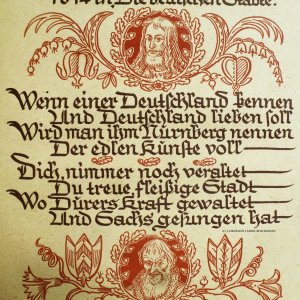 in Die deutschen Städte.
Wenn einer Deutschland kennen
Und Deutschland lieben soll
Wird man ihm Nürnberg nennen
Der edlen Künste voll
Dich, nimmer noch veraltet
Du treue, fleißige Stadt
Wo Dürers Kraft gewaltet
Und Sachs gesungen hat